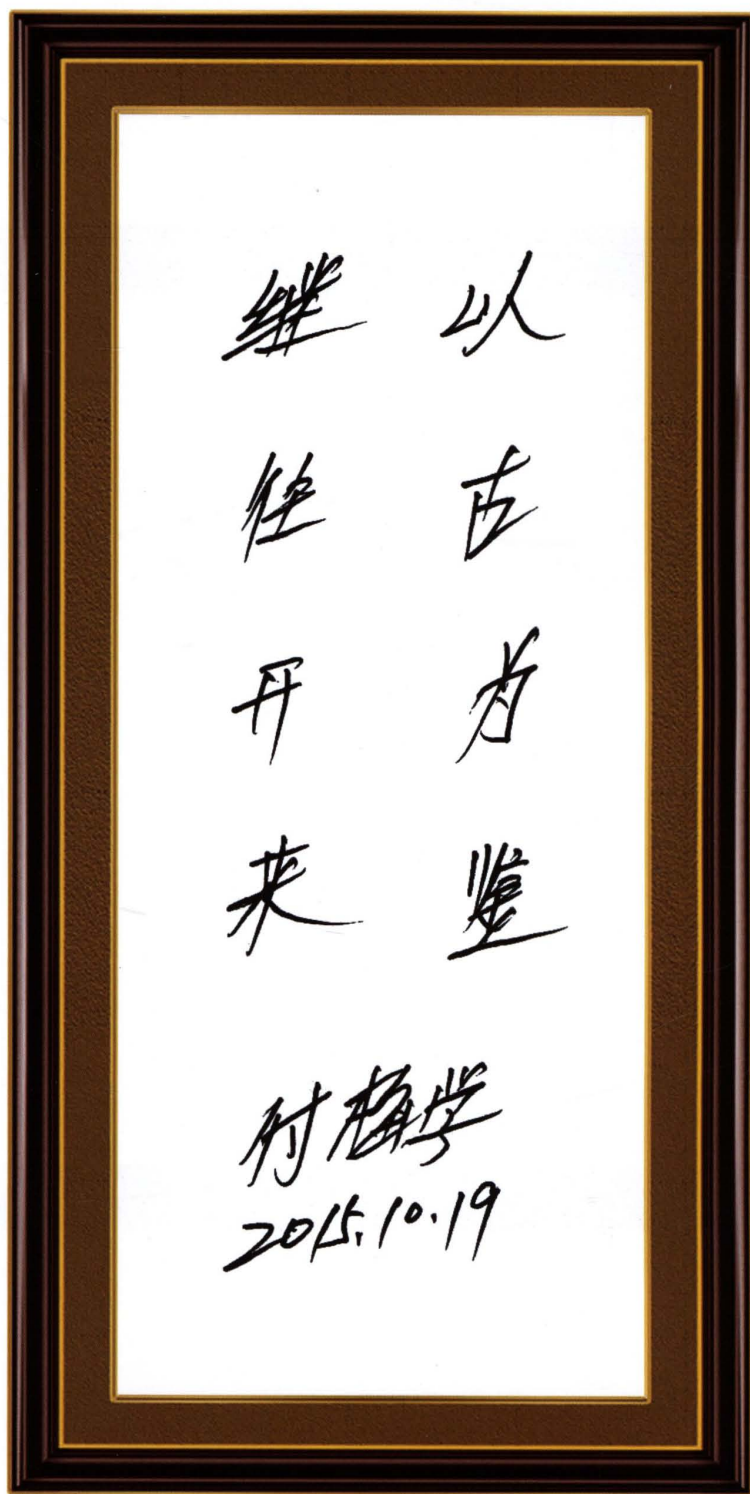 以古为鉴
继往开来
付梅学
2015.10.19